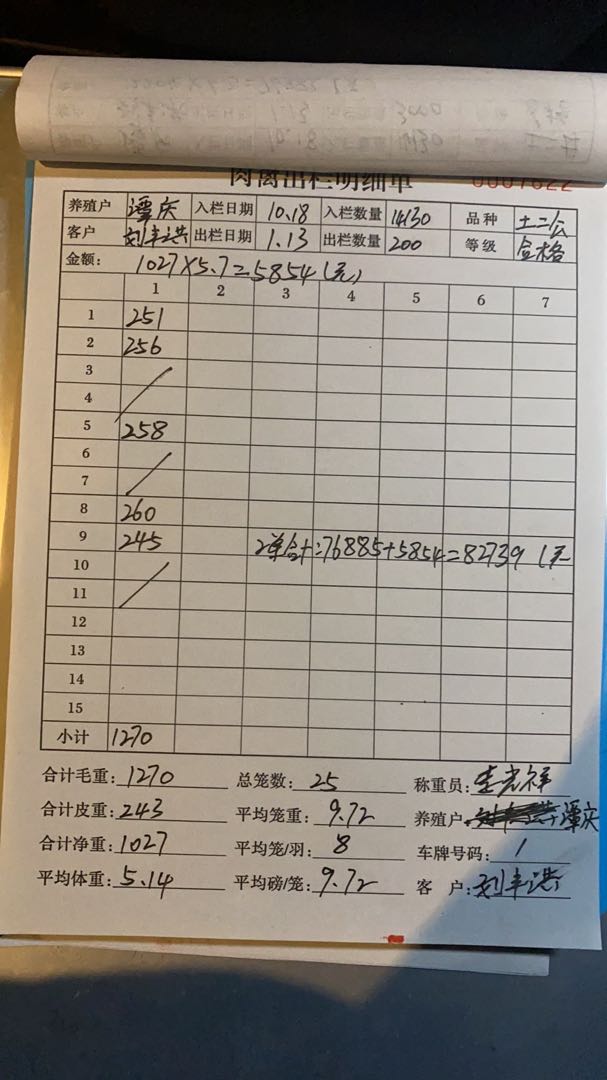 肉禽出栏明细单 0001622
养殖户 谭庆 入栏日期 10.18 入栏数量 14130 品种 土二公
客户 刘丰洪 出栏日期 1.13 出栏数量 200 等级 合格
金额: 1027×5.7=5854(元)
1 2 3 4 5 6 7
1 251
2 256
3
4
5 258
6
7
8 260
9 245 2单合计:76885+5854=82739(元
10
11
12
13
14
15
小计 1270
合计毛重:1270 总笼数:25 称重员:李光祥
合计皮重:243 平均笼重:9.72 养殖户:谭庆
合计净重:1027 平均笼/羽:8 车牌号码:1
平均体重:5.14 平均磅/笼:9.72 客户:刘丰洪